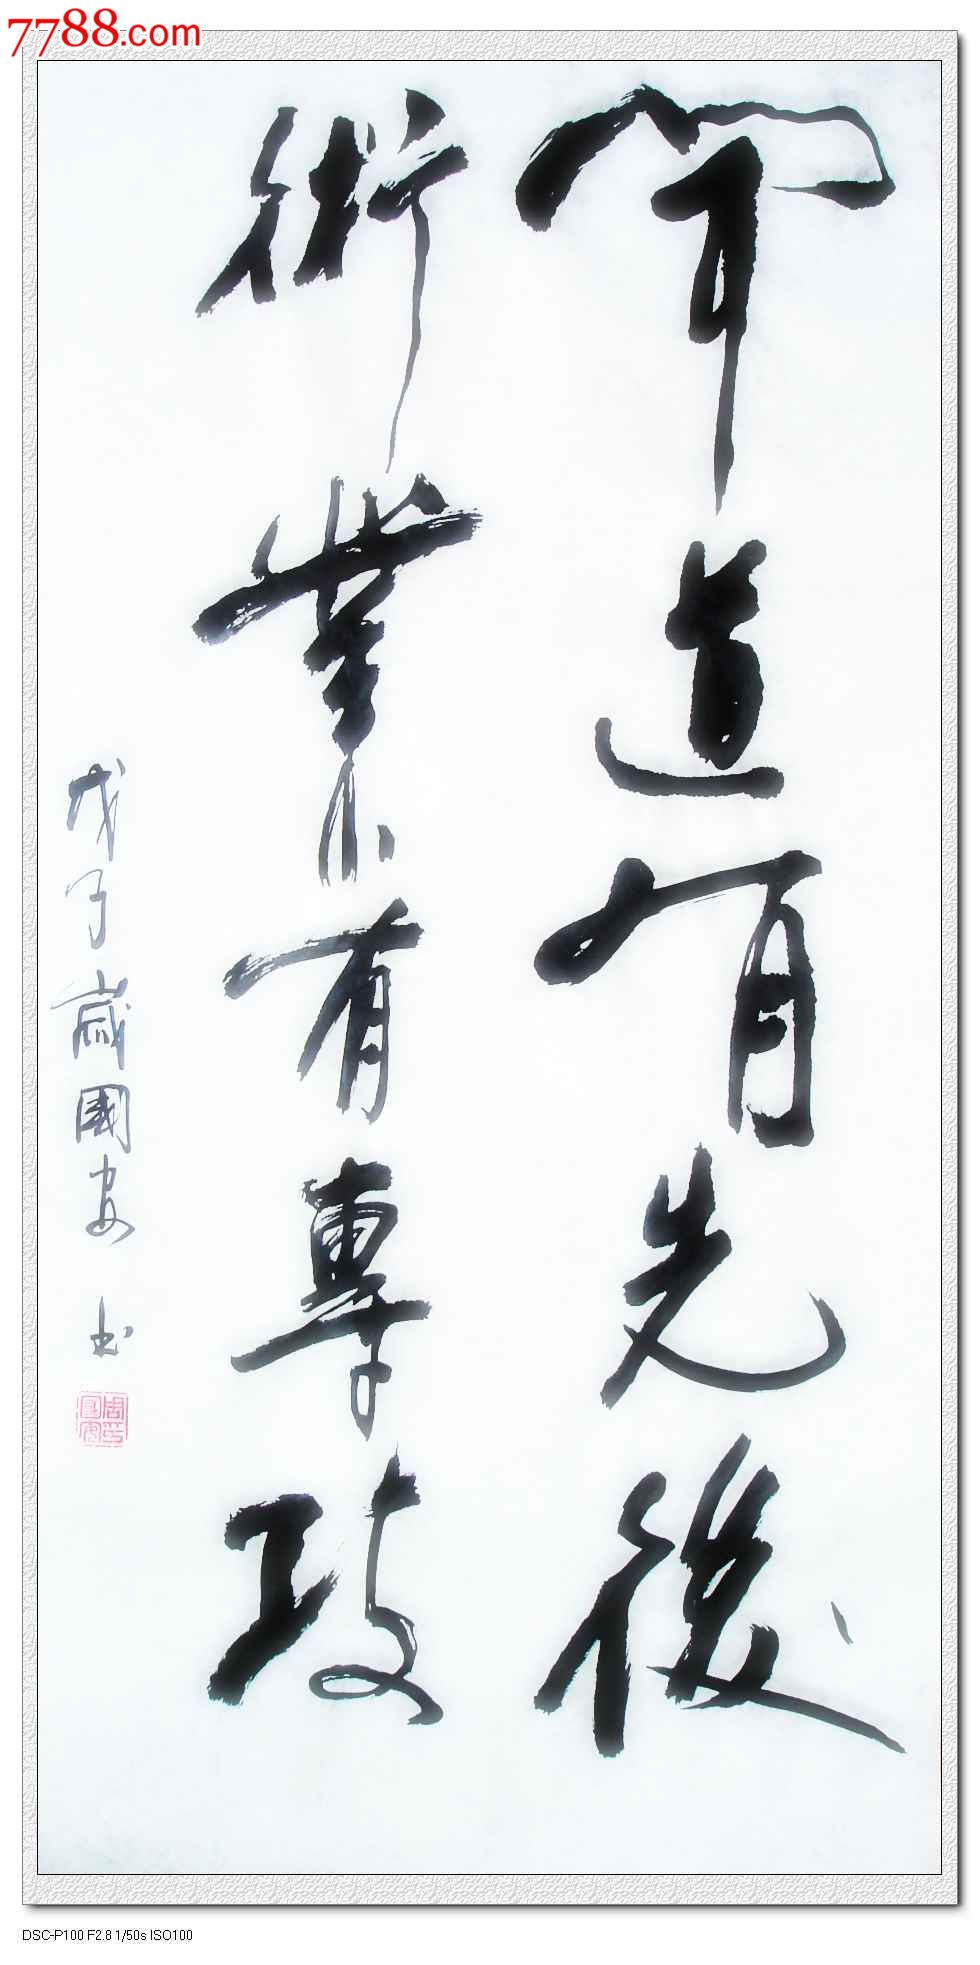 7788.com
闻道有先後
術業有專攻
戊子歲國安书
DSC-P100 F2.8 1/50s ISO100